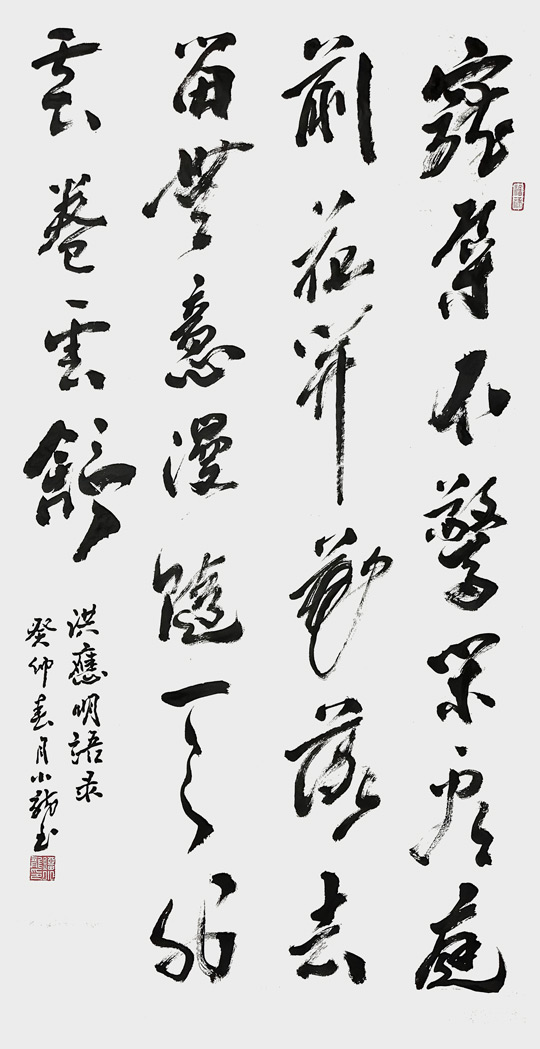 寵辱不驚閑看庭
前花開花落去
留無意漫隨天外
雲卷雲舒
洪應明語录
癸卯春月小龍书